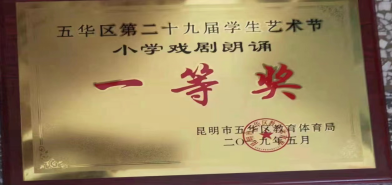 五华区第二十九届学生艺术节
小学戏剧朗诵
一等奖
昆明市五华区教育体育局
二〇一九年五月